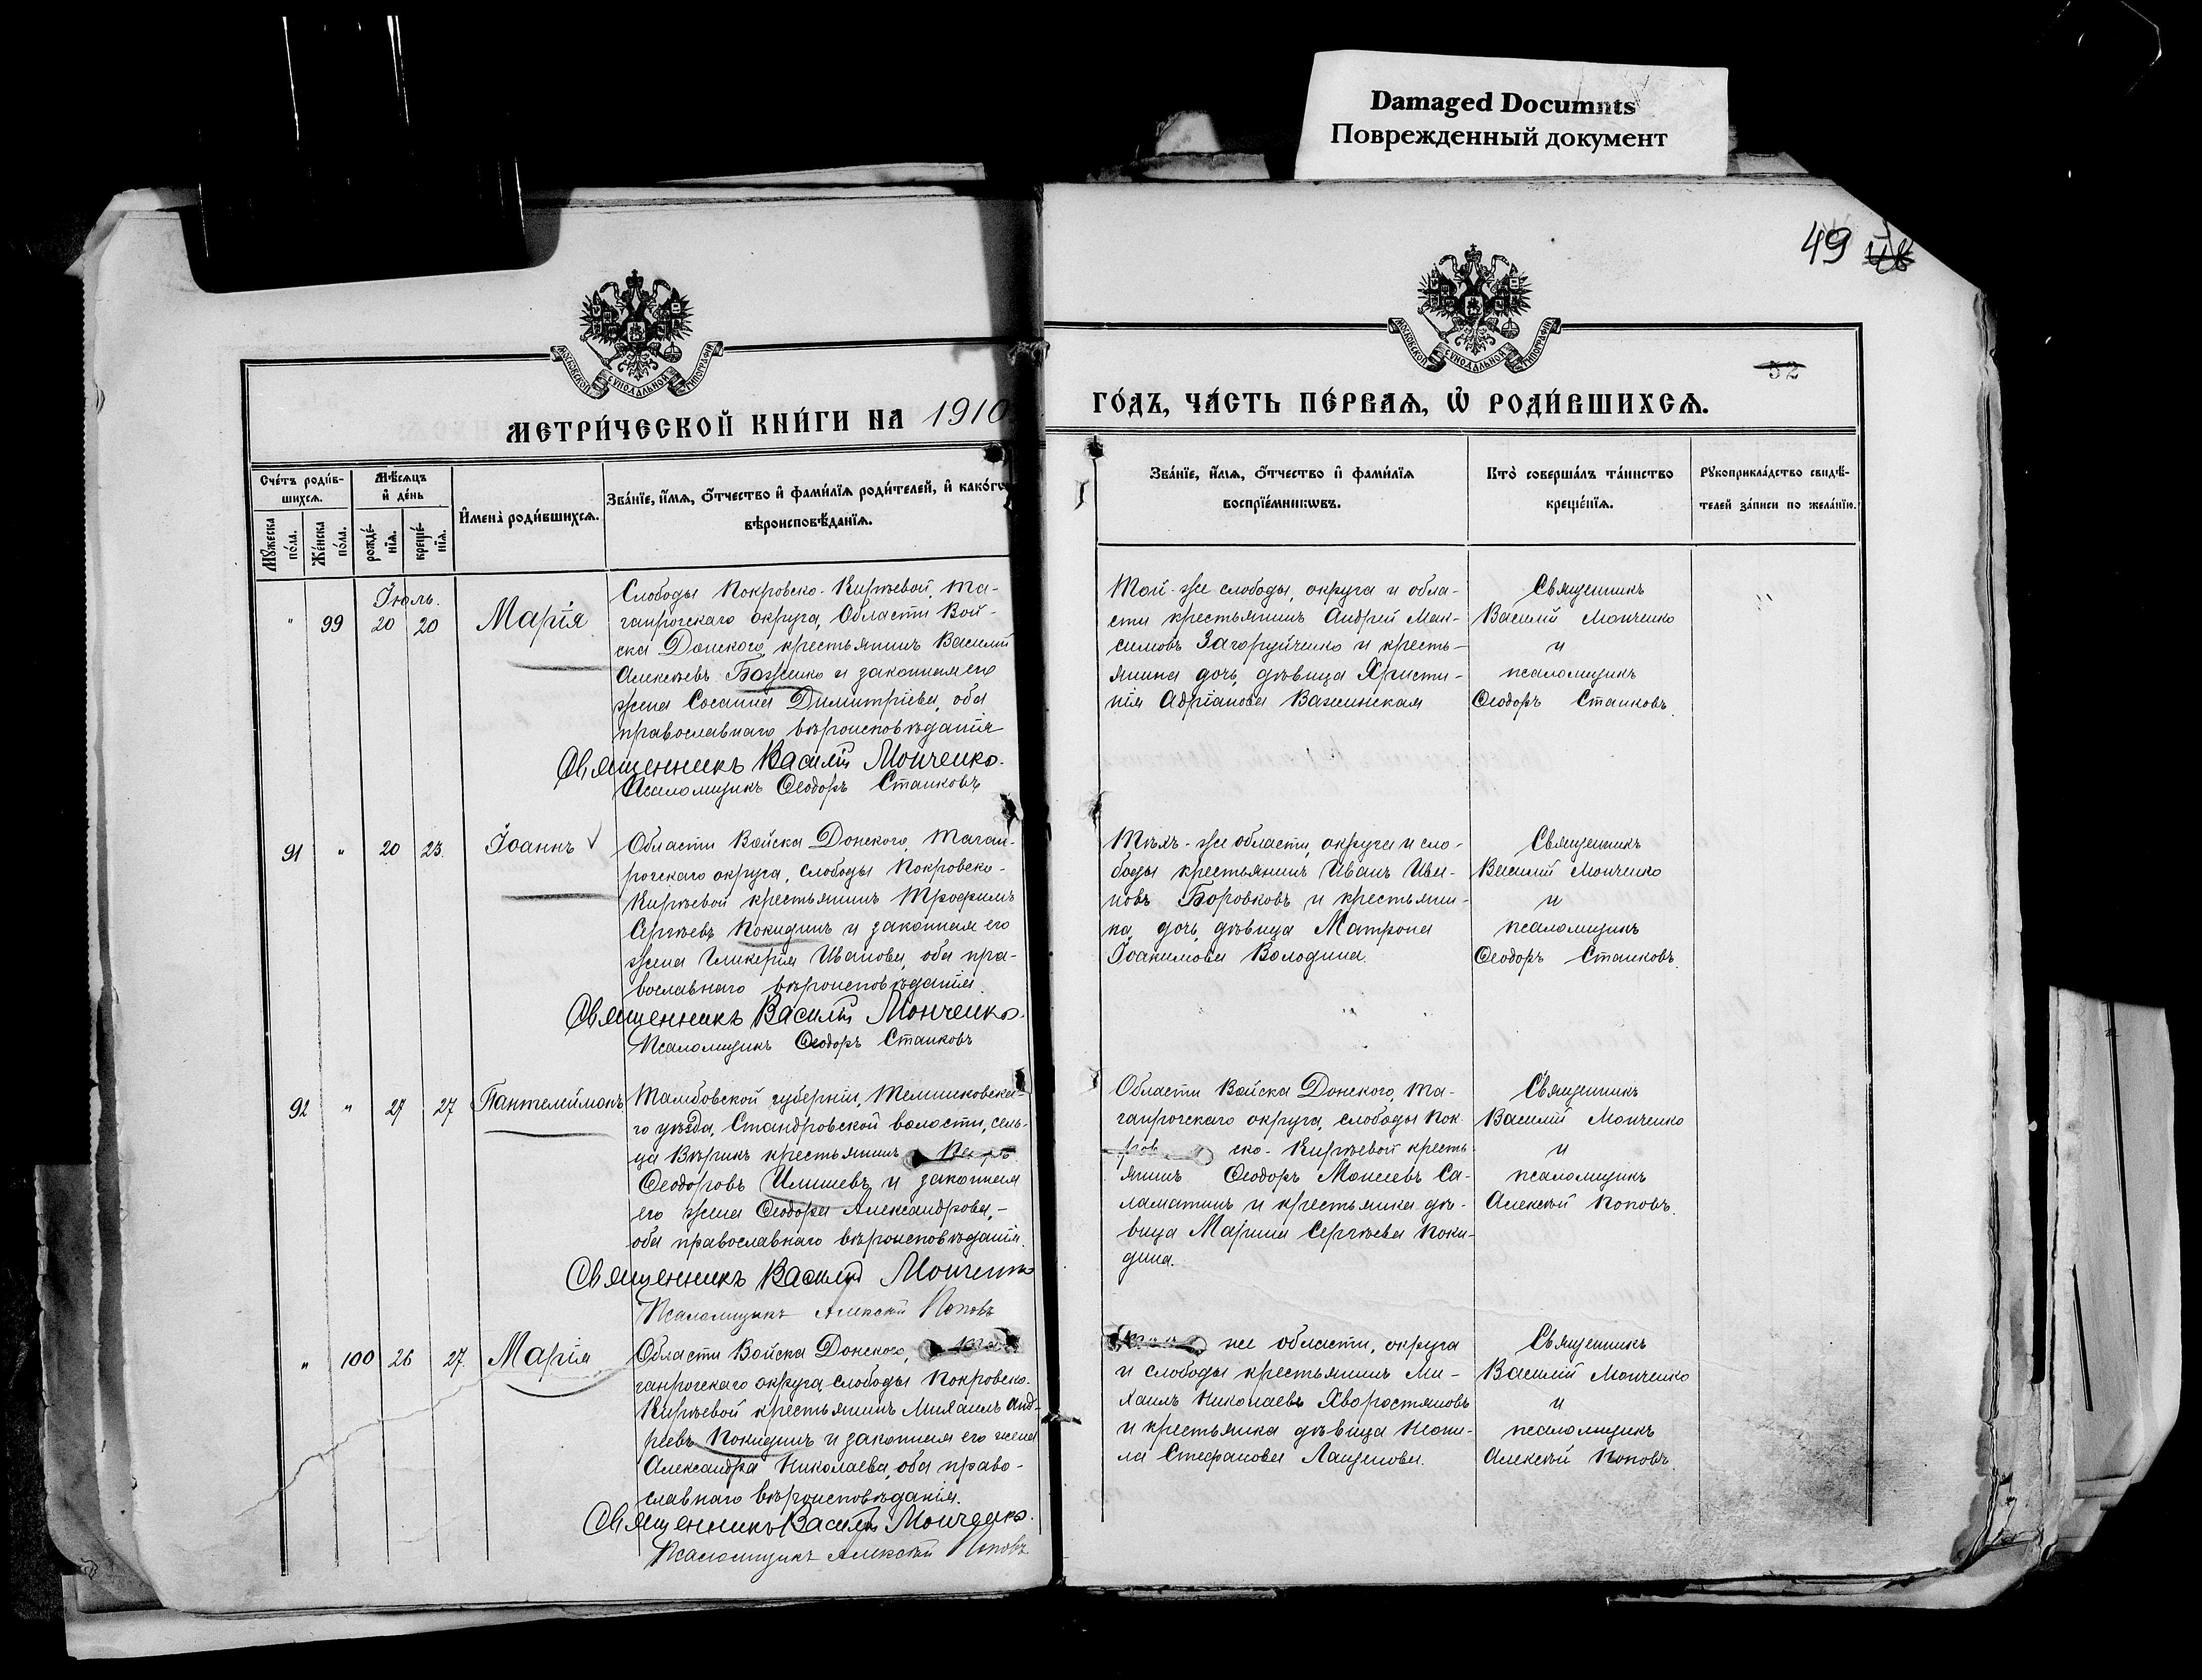 Damaged Documnts
Поврежденный документ
49
52
МОСКОВСКОЙ СѴНОДАЛЬНОЙ ТИПОГРАФІИ
МОСКОВСКОЙ СѴНОДАЛЬНОЙ ТИПОГРАФІИ
МЕТРИ́ЧЕСКОЙ КНИ́ГИ НА 1910
ГО́ДЪ, ЧА́СТЬ ПЕ́РВАѦ, Ѡ҆ РОДИ́ВШИХСѦ.
Сче́тъ роди́в-
шихсѧ.
Мꙋжеска по́ла.
Же́нска по́ла.
Мѣ́сѧцъ
и҆ де́нь
рожде́-
нїѧ.
креще́-
нїѧ.
И҆мена̀ роди́вшихсѧ.
Зва́нїе, и҆́мѧ, ѻ҆́тчество и҆ фами́лїѧ роди́телей, и҆ како́гѡ
вѣроисповѣ́данїѧ.
Зва́нїе, и҆́мѧ, ѻ҆́тчество и҆ фами́лїѧ
воспрїе́мникѡвъ.
Кто̀ соверша́лъ та́инство
креще́нїѧ.
Рꙋкоприкла́дство свидѣ́-
телей за́писи по жела́нїю.
Іюль.
" 99 20 20 Марія
Слободы Покровско-Кирѣевой, Та-
ганрогскаго округа, Области Вой-
ска Донского, крестьянинъ Василій
Алексѣевъ Боженко и законная его
жена Сосанна Димитріева, оба
православнаго вѣроисповѣданія
Священникъ Василій Монченко.
Псаломщикъ Ѳеодоръ Станковъ
Той-же слободы, округа и обла-
сти крестьянинъ Андрей Мак-
симовъ Загоруйченко и кресть-
янина дочь, дѣвица Христи-
нія Адріанова Важинская
Священникъ
Василій Монченко
и
псаломщикъ
Ѳеодоръ Станковъ.
91 " 20 23. Іоаннъ
Области Войска Донского, Таган-
рогскаго округа, слободы Покровско-
Кирѣевой крестьянинъ Трофимъ
Сергѣевъ Покидинъ и законная его
жена Гликерія Иванова, оба пра-
вославнаго вѣроисповѣданія.
Священникъ Василій Монченко.
Псаломщикъ Ѳеодоръ Станковъ
Тѣхъ-же области, округа и сло-
боды крестьянинъ Иванъ Ива-
новъ Боровковъ и крестьяни-
на дочь, дѣвица Матрона
Іоакимова Володина.
Священникъ
Василій Монченко
и
псаломщикъ
Ѳеодоръ Станковъ.
92 " 27 27 Пантелеймонъ
Тамбовской губерніи, Темниковска-
го уѣзда, Стандровской волости, сель-
ца Вѣрикъ крестьянинъ
Ѳеодоровъ и законная
его жена Ѳеодора Александрова,-
оба православнаго вѣроисповѣданія.
Священникъ Василій Монченко
Псаломщикъ Алексѣй Поповъ
Области Войска Донского, Та-
ганрогскаго округа, слободы Пок-
ров ско-Кирѣевой кресть-
янинъ Ѳеодоръ Моисеевъ Са-
ламатинъ и крестьянка дѣ-
вица Марина Сергѣева Поки-
дина.
Священникъ
Василій Монченко
и
псаломщикъ
Алексѣй Поповъ.
" 100 26 27. Марія
Области Войска Донского, Та-
ганрогскаго округа, слободы Покровско-
Кирѣевой крестьянинъ Михаилъ Анд-
реевъ Покидинъ и законная его жена
Александра Николаева, оба право-
славнаго вѣроисповѣданія.
Священникъ Василій Монченко.
Псаломщикъ Алексѣй Поповъ.
же области, округа
и слободы крестьянинъ Ми-
хаилъ Николаевъ Хворостяновъ
и крестьянка дѣвица Неони-
ла Стефанова Лащенова.
Священникъ
Василій Монченко
и
псаломщикъ
Алексѣй Поповъ.